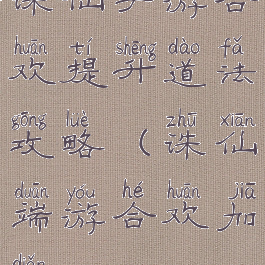 诛仙手游合
huān tí shēng dào fǎ
欢提升道法
gōng lüè zhū xiān
攻略(诛仙
duān yóu hé huān jiā
端游合欢加
diǎn